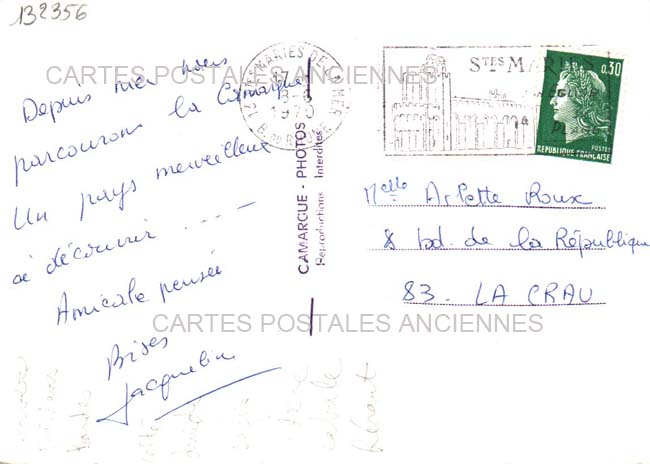 132356
CARTES POSTALES ANCIENNES
Depuis hier nous
parcourons la Camargue
Un pays merveilleux
à découvrir . . . .
Amicale pensée
Bises
Jacqueline
CAMARGUE - PHOTOS
Reproductions Interdites
STES MARIES DE LA MER
17 H
1970
B. DU RHONE
STES MARIES
0,30
POSTES
REPUBLIQUE FRANÇAISE
Melle Arlette Roux
8 bd. de la République
83. LA CRAU
CARTES POSTALES ANCIENNES